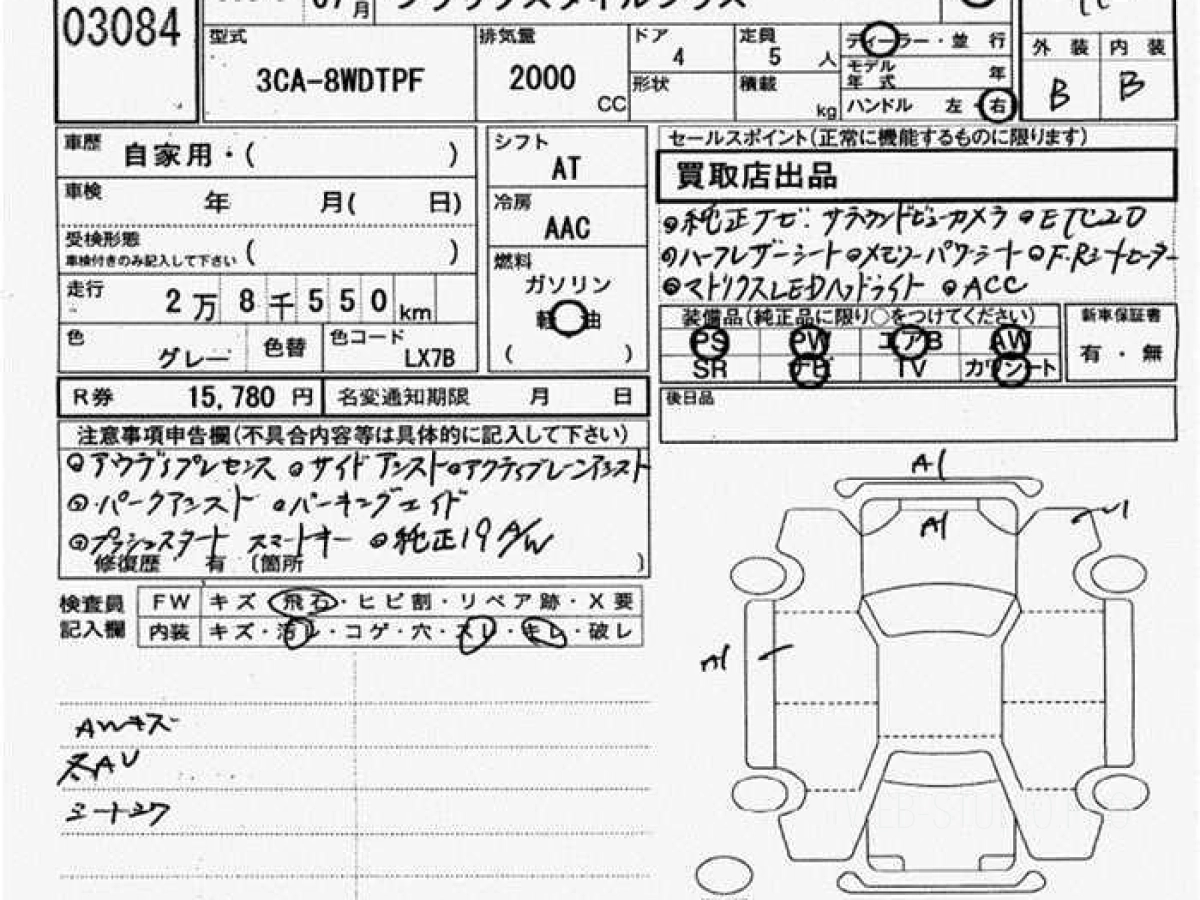 03084
07月
型式 3CA-8WDTPF
排気量 2000 CC
ドア 4
定員 5 人
ディーラー・並 行
形状
積載 kg
モデル年式 年
ハンドル 左 右
外 装 内 装
B B
車歴 自家用・( )
車検 年 月( 日)
受検形態 ( )
車検付きのみ記入して下さい
走行 2万8千550km
色 グレー 色替
色コード LX7B
シフト AT
冷房 AAC
燃料
ガソリン
軽 油
( )
セールスポイント(正常に機能するものに限ります)
買取店出品
◎純正ナビ サラウンドビューカメラ ◎ETC2.0
◎ハーフレザーシート ◎メモリーパワーシート ◎F.Rシートヒーター
◎マトリクスLEDヘッドライト ◎ACC
装備品(純正品に限り○をつけてください)
PS PW エアB AW
SR ナビ TV カワシート
新車保証書
有 ・ 無
後日品
R券 15,780 円 名変通知期限 月 日
注意事項申告欄(不具合内容等は具体的に記入して下さい)
◎アウディプレセンス ◎サイドアシスト ◎アクティブレーンアシスト
◎パークアシスト ◎パーキングエイド
◎プッシュスタート スマートキー ◎純正19A/W
修復歴 有 〔箇所 〕
検査員記入欄
FW キズ・飛石・ヒビ割・リペア跡・X要
内装 キズ・汚レ・コゲ・穴・スレ・キレ・破レ
AWキズ
A1
A1
A1